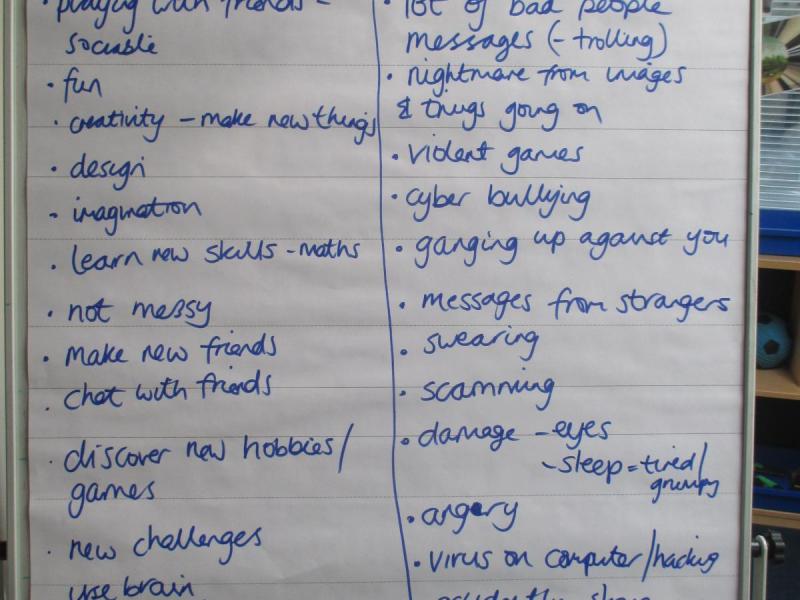 · playing with friends -
sociable
· fun
· creativity - make new things
· design
· imagination
· learn new skills - maths
· not messy
· make new friends
· chat with friends
· discover new hobbies/
games
· new challenges
use brain
· lot of bad people
messages (- trolling)
· nightmare from images
& things going on
· violent games
· cyber bullying
· ganging up against you
· messages from strangers
· swearing
· scamming
· damage - eyes
- sleep = tired/
grumpy
· angery
· virus on computer/hacking